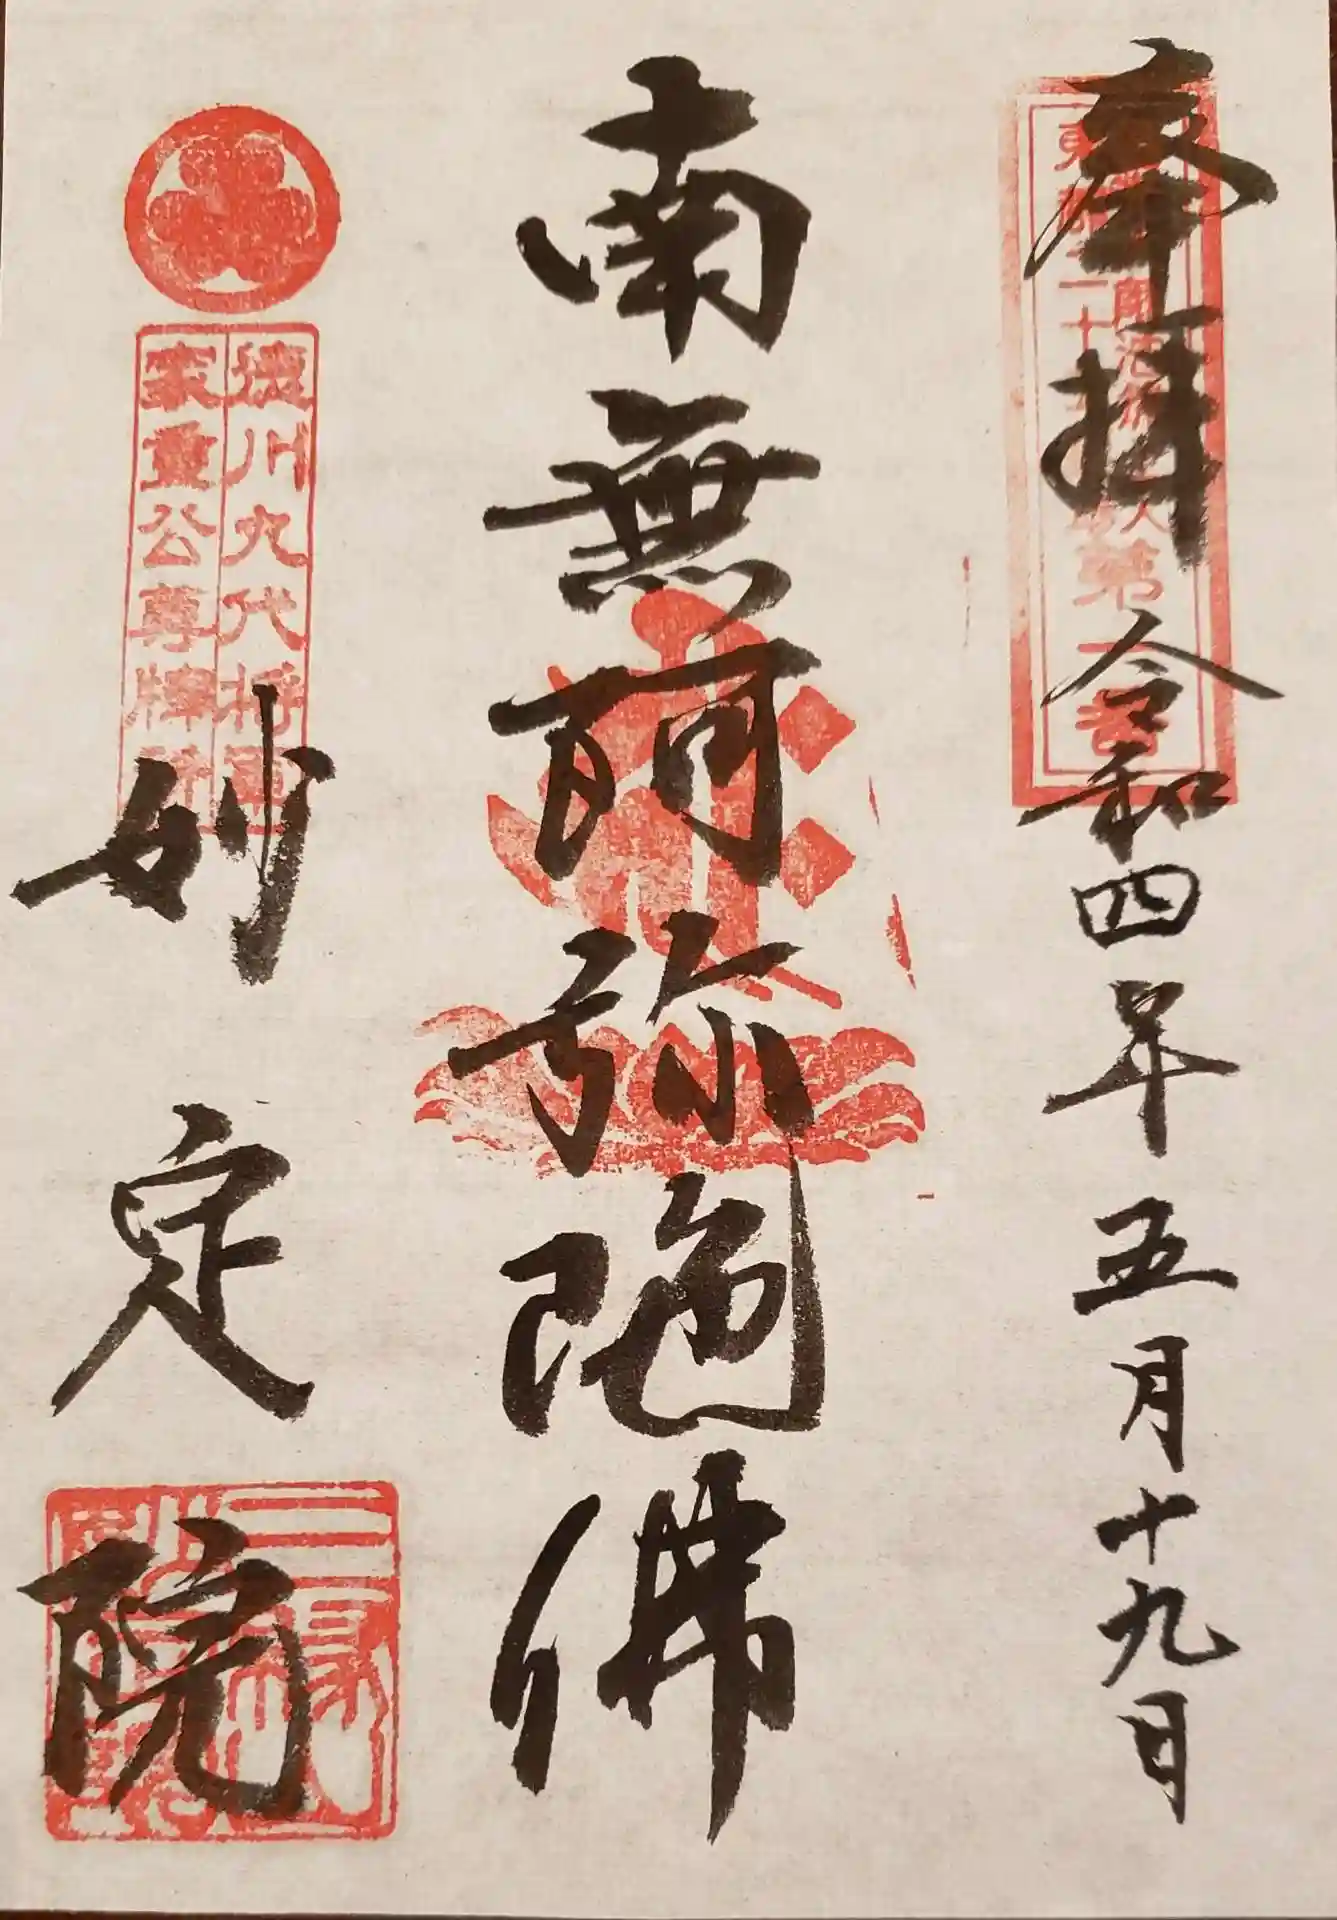 奉拝 令和四年五月十九日
南無阿弥陀佛
徳川九代将軍
家重公尊牌所
妙定院